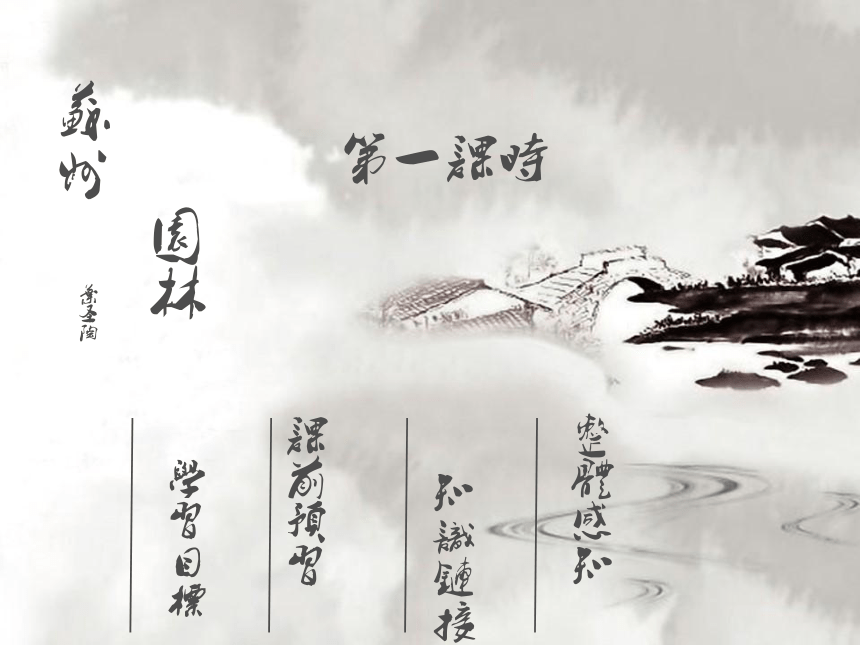 蘇州
園林
葉圣陶
第一課時
學習目標
課前預習
知識鏈接
整體感知